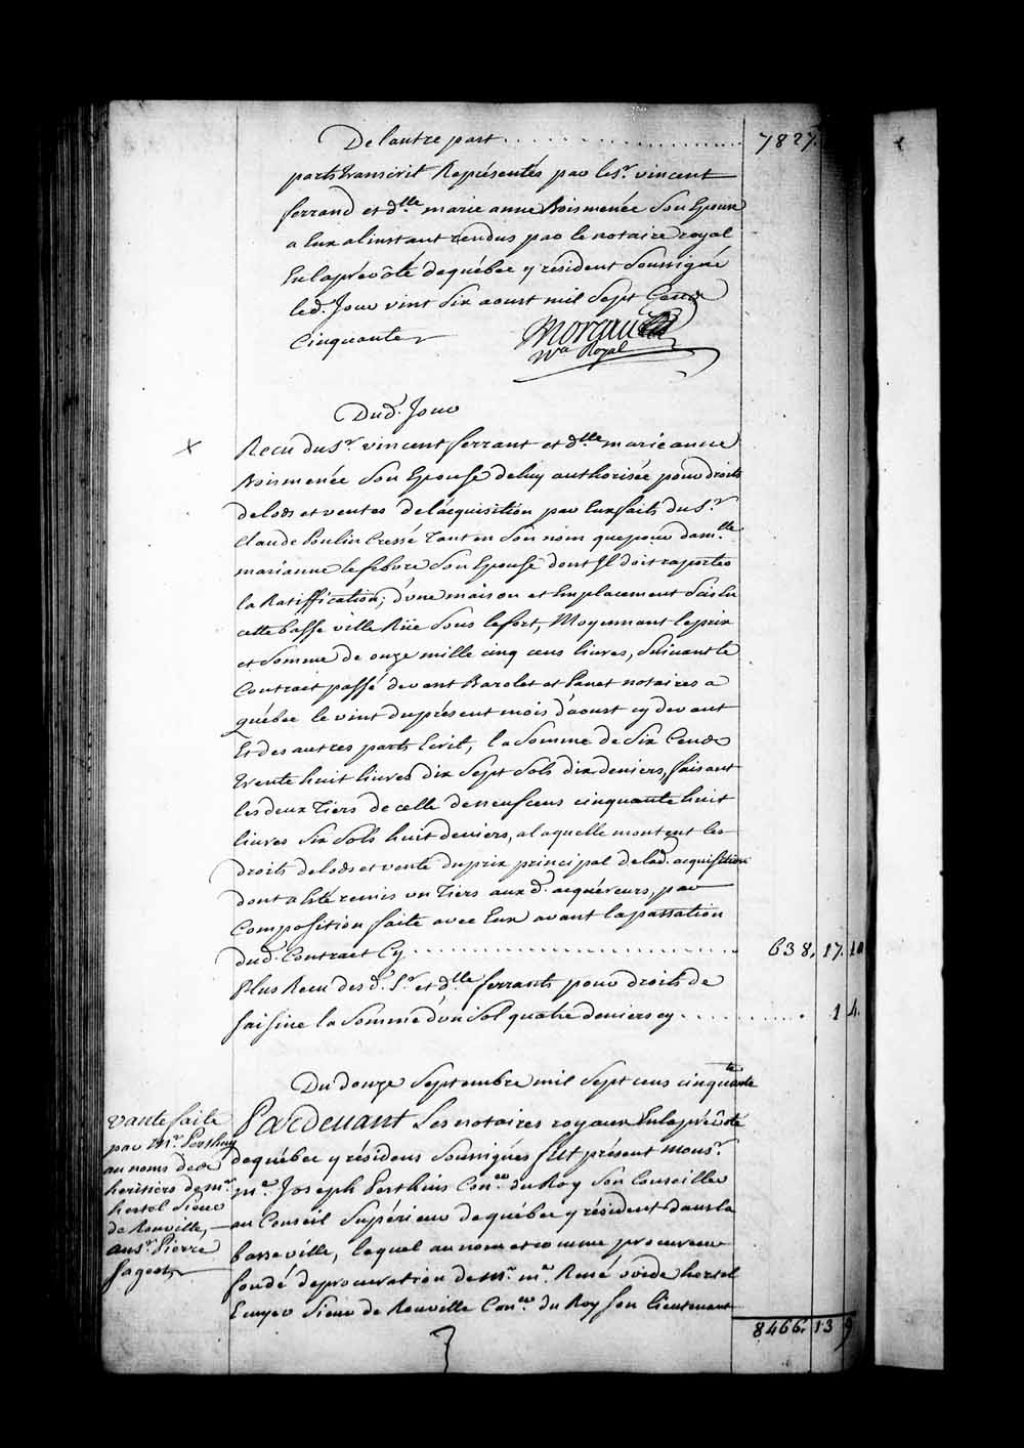 De lautre part . . . . . . . . . . . . . . . . . . 7827.
parts transcrit Représentés par le Sr. vincent
ferrand et dlle marie anne Boismenée Son Epouse
a Eux alinstant rendus par le notaire royal
En laprévôté dequébec y résident Soussigné
led. Jour vint Six aoust mil Sept Cens
Cinquante
Moreau
Nre Royal
Dud. Jour
x
Recu du Sr. vincent ferrant et dlle marie anne
Boismenée Son Epouse deluy authorisée pour droits
delods et ventes delacquisition par Eux faits du Sr.
Claude Poulin Cressé Tant en Son nom que pour damlle
marianne lefebvre Son Epouse dont Il doit raporter
la Ratiffication, d'une maison et Emplacement Scis En
cette basse ville Rüe Sous lefort, Moyennant le prix
et Somme de onze mille cinq cens livres, Suivant le
Contract passé devant Barolet et Panet notaires a
québec le vint duprésent mois d'aoust cy devant
Et des autres parts Ecrit, la Somme de Six Cens
trente huit livres dix Sept Sols dix deniers, faisant
les deux Tiers de celle deneuf cens cinquante huit
livres Six Sols huit deniers, a laquelle montent les
droits delods et vente duprix principal delad. acquisition
dont a Eté remis un Tiers aux d. acquéreurs, par
Composition faite avec Eux avant lapassation
dud. Contract Cy . . . . . . . . . . . . . . . . . . 638, 17. 10
Plus Recu des d. Sr. et dlle ferrants pour droits de
Saisine la Somme d'un Sol quatre deniers cy . . . . . . . . 1 4.
Du douze Septembre mil Sept cens cinquante
vante faite
par Mr. Perthuy
au noms des
heritiers de mr.
hertel Sieur
de Rouville,
au Sr. Pierre
fageot
Pardevant Les notaires royaux En la prévôté
dequébec y résidens Soussignés fut présent Monsr.
me. Joseph Perthuis Coner. du Roy Son Conseiller
au Conseil Supérieur dequébec y résident dans la
basse ville, lequel au nom et comme procureur
fondé deprocuration de Mr. me. René ovide hertel
Ecuyer Sieur de Rouville Coner. du Roy Son lieutenant
8466. 13 9